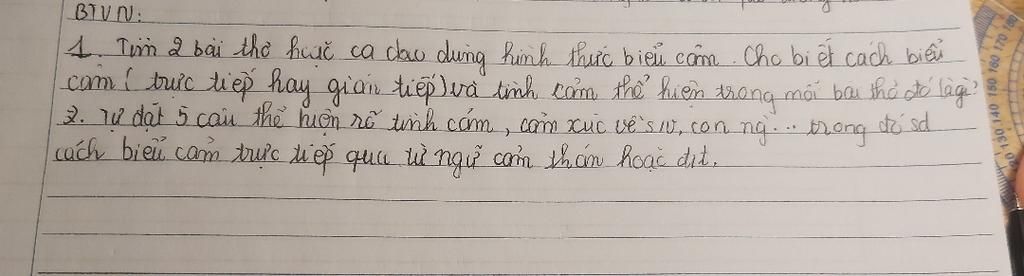 BTVN:
1. Tìm 2 bài thơ hoặc ca dao dùng hình thức biểu cảm. Cho biết cách biểu
cảm (trực tiếp hay gián tiếp) và tình cảm thể hiện trong mỗi bài thơ đó là gì?
2. Tự đặt 5 câu thể hiện rõ tình cảm, cảm xúc về sv, con ng... trong đó sd
cách biểu cảm trực tiếp qua từ ngữ cảm thán hoặc